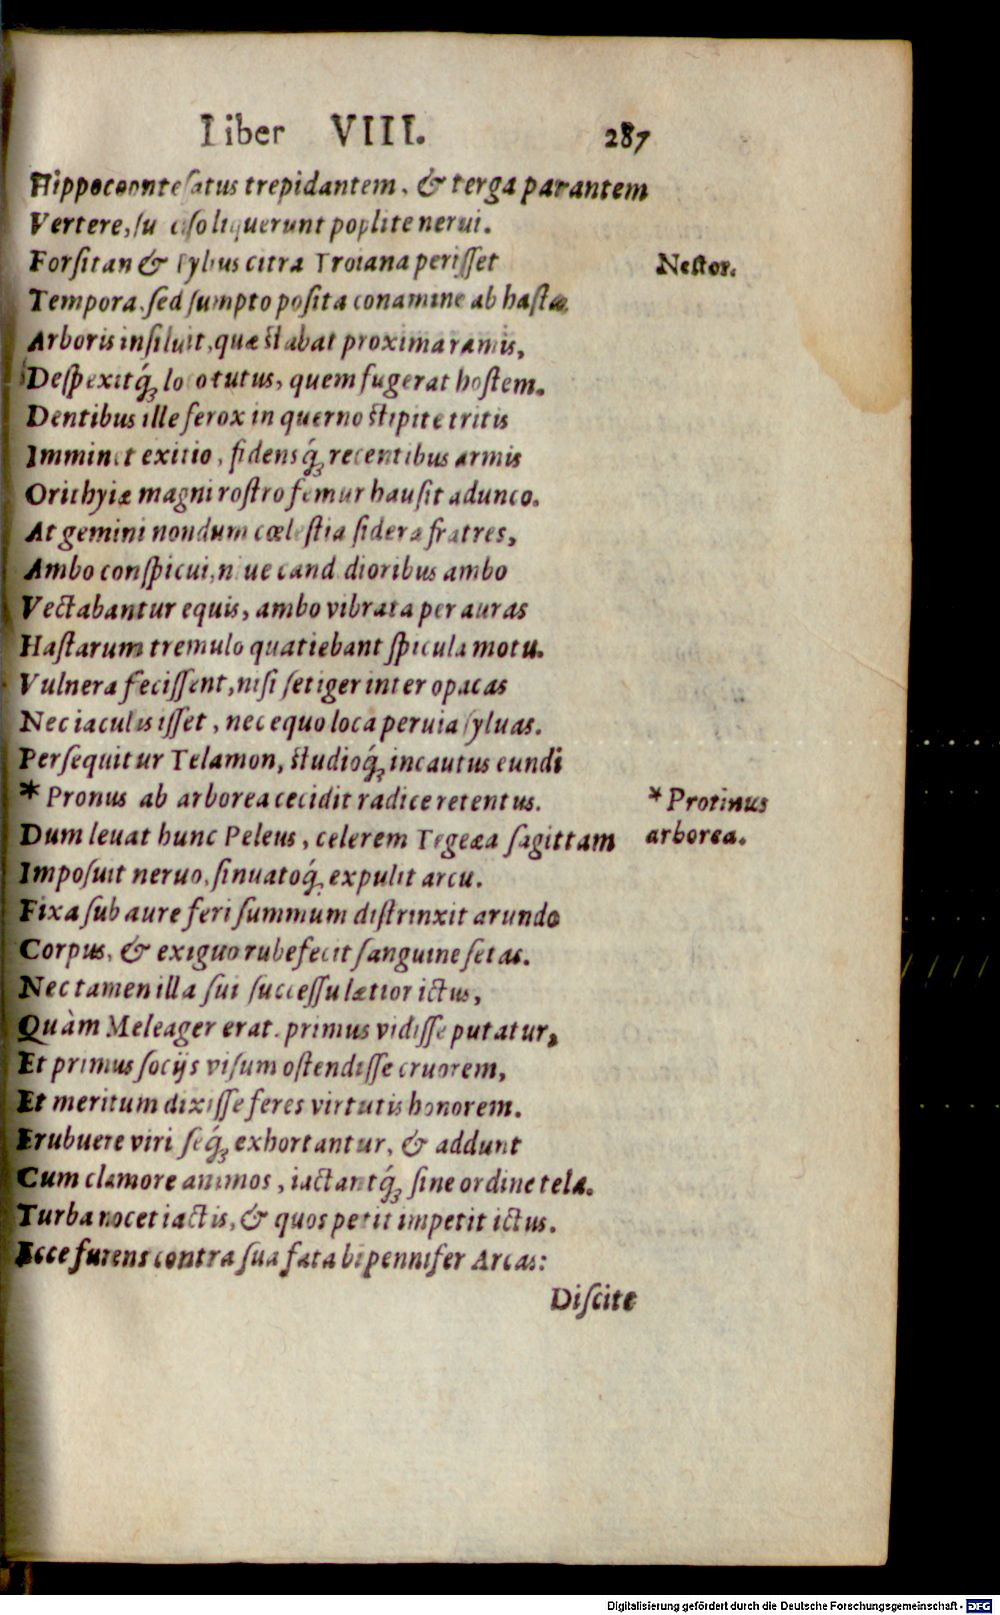 Liber VIII. 287
Hippocoonte ſatus trepidantem, & terga parantem
Vertere, ſucciſo liquerunt poplite nerui.
Forſitan & Pylius citra Troiana periſſet
Nestor.
Tempora, ſed ſumpto poſita conamine ab haſta
Arboris inſiluit, quæ ſtabat proxima ramis,
Deſpexitq́ꝫ loco tutus, quem fugerat hoſtem.
Dentibus ille ferox in querno ſtipite tritis
Imminet exitio, fidensq́ꝫ recentibus armis
Orithyiæ magni roſtro femur hauſit adunco.
At gemini nondum cœleſtia ſidera fratres,
Ambo conſpicui, niue candidioribus ambo
Vectabantur equis, ambo vibrata per auras
Haſtarum tremulo quatiebant ſpicula motu.
Vulnera feciſſent, niſi ſetiger inter opacas
Nec iaculis iſſet, nec equo loca peruia ſyluas.
Perſequitur Telamon, ſtudioq́ꝫ incautus eundi
* Pronus ab arborea cecidit radice retentus.
* Protinus
arborea.
Dum leuat hunc Peleus, celerem Tegeæa ſagittam
Impoſuit neruo, ſinuatoq́ꝫ expulit arcu.
Fixa ſub aure feri ſummum diſtrinxit arundo
Corpus, & exiguo rubefecit ſanguine ſetas.
Nec tamen illa ſui ſucceſſu lætior ictus,
Quàm Meleager erat. primus vidiſſe putatur,
Et primus ſocijs viſum oſtendiſſe cruorem,
Et meritum dixiſſe feres virtutis honorem.
Erubuere viri ſeq́ꝫ exhortantur, & addunt
Cum clamore animos, iactantq́ꝫ ſine ordine tela.
Turba nocet iactis, & quos petit impetit ictus.
Ecce furens contra ſua fata bipennifer Arcas:
Diſcite
Digitalisierung gefördert durch die Deutsche Forschungsgemeinschaft - DFG